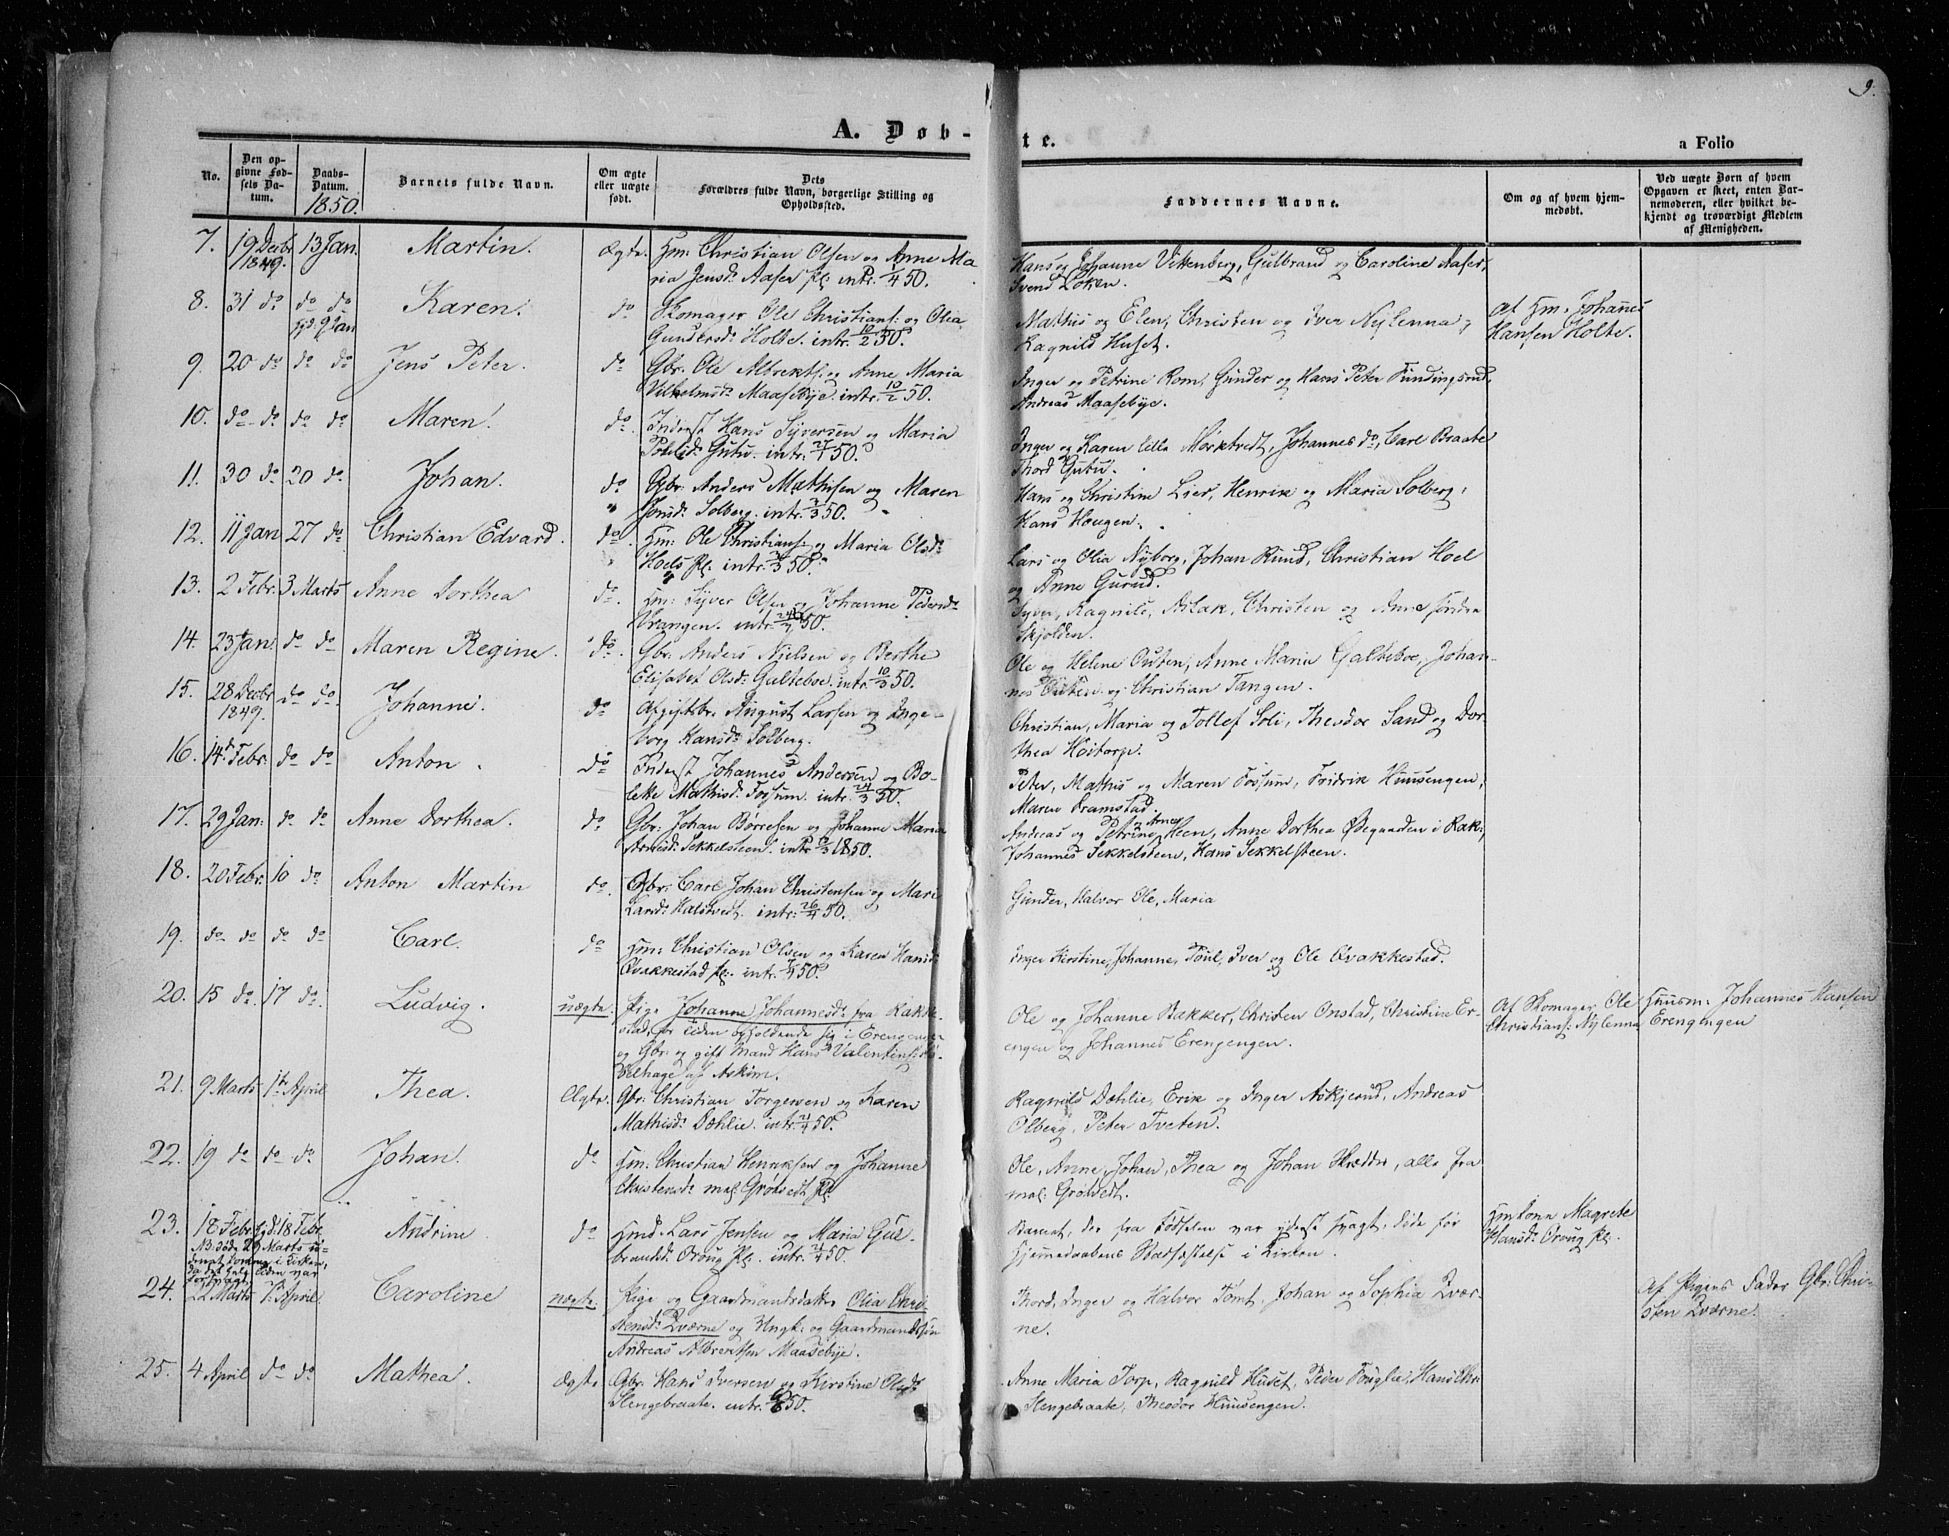 9.
A. Døb-
te.
a Folio
No.
Den op-
givne Fød-
sels Da-
tum.
Daabs-
Datum.
1850.
Barnets fulde Navn.
Om ægte
eller uægte
født.
Dets
Forældres fulde Navn, borgerlige Stilling og
Opholdssted.
Faddernes Navne.
Om og af hvem hjem-
medøbt.
Ved uægte Børn af hvem
Opgaven er skeet, enten Bar-
nemoderen, eller hvilket be-
kjendt og troværdigt Medlem
af Menigheden.
7. 19 Decbr 1849. 13 Jan. Martin. Ægte. Hm: Christian Olsen og Anne Ma
ria Jensd: Aasen pl: intr. 1/4 50.
Hans og Johanne Vittenberg, Gulbrand og Caroline Aasen,
Svend Løken.
8. 31 do do do Karen. do Skomager Ole Christians: og Olia
hjd. 9 Jan Gundersd: Holte. intr. 10/2 50.
Mathis og Elen, Christen og Iver Nylenna,
Ragnild Huset.
af Hm: Johannes
Hansen Holte.
9. 20 do do do Jens Peter. do Gbr. Ole Albrekts: og Anne Maria
Vilhelmsd: Maasebye. intr. 10/2 50.
Inger og Petrine Rom, Gunder og Hans Peter Fundingsrud,
Andreas Maasebye.
10. do do do do Maren. do. Inderst Hans Syversen og Maria
Gutu. intr. 27/1 50.
Inger og Karen lille Mørktvedt, Johannes do, Carl Braate
Thord Gutu.
11. 30 do 20 do Johan. do Gbr. Anders Mathisen og Maren
Jensd: Solberg. intr. 50.
Hans og Christine Lier, Henrik og Maria Solberg,
Hans Haugen.
12. 11 Jan 27 do Christian Edvard. do. Hm: Ole Christians: og Maria Olsd:
Hoels pl: intr. 50.
Lars og Olia Nyborg, Johan Rund, Christian Hoel
og Anne Gurud.
13. 2 Febr. 3 Marts Anne Dorthea do. Hm: Syver Olsen og Johanne Pedersd:
Vrangen. intr. 50.
Syver, Ragnild, Aslak, Christen og Anne søndre
Skjolden.
14. 23 Jan. do do Maren Regine. do. Gbr. Anders Nielsen og Berthe
Elisabet Olsd: Galteboe. intr. 10/3 50.
Ole og Helene Outen, Anne Maria Galteboe, Johan-
nes Outen og Christian Tangen.
15. 28 Decbr 1849. do do. Johanne. do Afgiftsbr. August Larsen og Inge-
borg Hansd: Solberg.
Christian, Maria og Tollef Soli, Theodor Sand og Dor-
thea Høitorp.
16. 14de Febr. do do Anton. do Inderst Johannes Andersen og Bo-
lette Mathisd: Fossum. intr. 24/3 50.
Peter, Mathis og Maren Fossum, Fridrik Huusengen,
Maren Dramstad.
17. 29 Jan. do do Anne Dorthea. do Gbr. Johan Børresen og Johanne Maria
Arnesd: Sekkelsteen. intr. 1850.
Andreas og Petrine og Arne Heen, Anne Dorthea Ødegaarden i Rak:,
Johannes Sekkelsteen, Hans Sekkelsteen.
18. 20 Febr. 10 do Anton Martin do. Gbr: Carl Johan Christensen og Mari
Larsd: Halstvedt. intr: 26/4 50.
Gunder, Halvor Ole, Maria
19. do do do do Carl. do Hm: Christian Olsen og Karen Hansd:
Qvakkestad pl: intr. 50.
Inger Kirstine, Johannes, Poul, Iver og Ole Qvakkestad.
20. 15 do. 17 do. Ludvig. uægte. Pige Johanne Johannesd: fra Rakke-
stad, for tiden opholdende sig i Erengengen
og Gbr. og gift Mand Hans Valentins:
Velhage af Askim.
Ole og Johanne Bakker, Christen Onstad, Christine Er-
engen og Johannes Erengengen.
Af Skomager Ole
Christians: Nylenna
Huusm: Johannes Hansen
Erengengen
21. 9 Marts 1ste April Thea. Ægte. Gbr: Christian Torgersen og Karen
Mathisd: Dæhlie. intr. 21/4 50.
Ragnild Dæhlie, Erik og Inger Askjerud, Andreas
Olberg, Peter Tveten.
22. 19 do do do Johan. do Hm: Christian Henriksen og Johanne
Christensd: mel: Grøtvedt pl:
Ole, Anne, Johan, Thea og Johan Skrædder, alle fra
mel: Grøtvedt.
23. 18 Febr. hjd. 18 Febr. Andrine do Hmd. Lars Jensen og Maria Gul-
brandsd: Oroug pl. intr. 21/4 50.
Barnet, der fra Fødselen var yderst svagt, døde før
Hjemmedaabens Stadfæstelse i Kirken.
Hmkona Magrete
Hansd: Oroug pl:
24. 22 Marts 1ste April Caroline uægte. Pige og Gaardmandsdatter Olia Chri-
stensd: Qværne og Ungk: og Gaardmandssøn
Andreas Albrektsen Maasebye.
Thord, Inger og Halvor Tømt, Johan og Sophia Qvær-
ne.
Af Pigens Fader Gbr: Chri-
sten Qværne.
25. 4 April do do Mathea. Ægte Gbr. Hans Iversen og Kirstine Olsd:
Slengebraate. intr. 50.
Anne Maria Torp, Ragnild Huset, Peder Fuglie, Hans Chr.
Slengebraate, Theodor Huusengen.